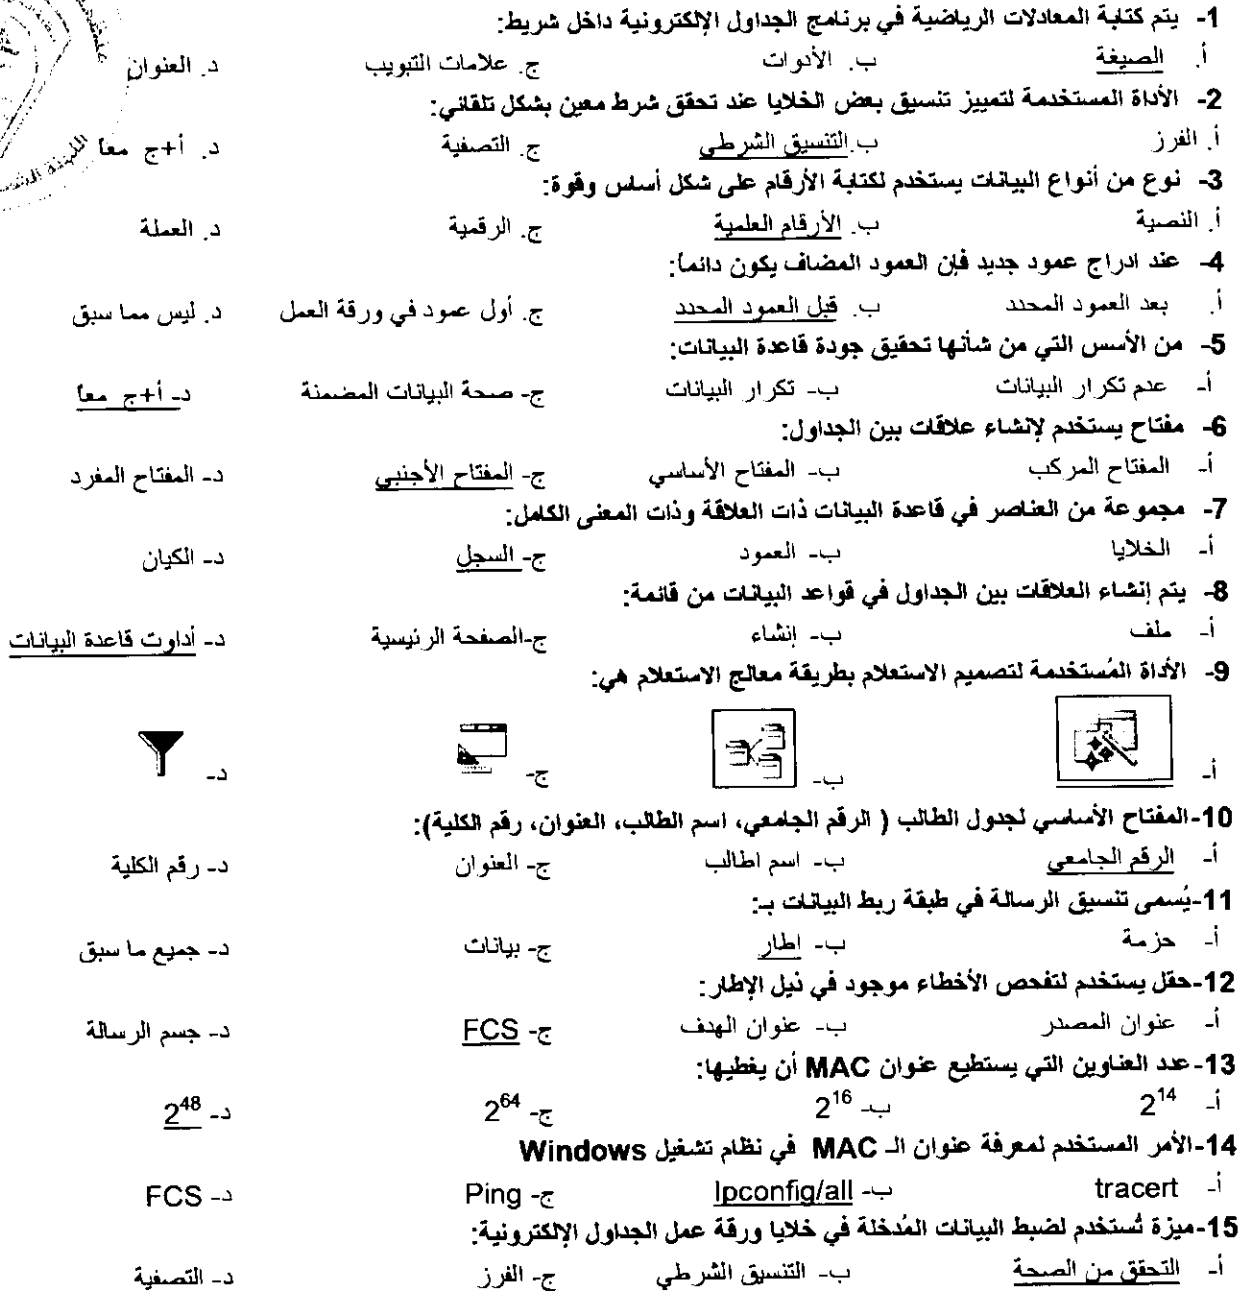 1- يتم كتابة المعادلات الرياضية في برنامج الجداول الإلكترونية داخل شريط:
أ. الصيغة ب. الأدوات ج. علامات التبويب د. العنوان
2- الأداة المستخدمة لتمييز تنسيق بعض الخلايا عند تحقق شرط معين بشكل تلقائي:
أ. الفرز ب.التنسيق الشرطي ج. التصفية د. أ+ج معاً
3- نوع من أنواع البيانات يستخدم لكتابة الأرقام على شكل أساس وقوة:
أ. النصية ب. الأرقام العلمية ج. الرقمية د. العملة
4- عند ادراج عمود جديد فإن العمود المضاف يكون دائماً:
أ. بعد العمود المحدد ب. قبل العمود المحدد ج. أول عمود في ورقة العمل د. ليس مما سبق
5- من الأسس التي من شأنها تحقيق جودة قاعدة البيانات:
أ- عدم تكرار البيانات ب- تكرار البيانات ج- صحة البيانات المضمنة د- أ+ج معاً
6- مفتاح يستخدم لإنشاء علاقات بين الجداول:
أ- المفتاح المركب ب- المفتاح الأساسي ج- المفتاح الأجنبي د- المفتاح المفرد
7- مجموعة من العناصر في قاعدة البيانات ذات العلاقة وذات المعنى الكامل:
أ- الخلايا ب- العمود ج- السجل د- الكيان
8- يتم إنشاء العلاقات بين الجداول في قواعد البيانات من قائمة:
أ- ملف ب- إنشاء ج-الصفحة الرئيسية د- أداوت قاعدة البيانات
9- الأداة المُستخدمة لتصميم الاستعلام بطريقة معالج الاستعلام هي:
أ- ب- ج- د-
10-المفتاح الأساسي لجدول الطالب ( الرقم الجامعي، اسم الطالب، العنوان، رقم الكلية):
أ- الرقم الجامعي ب- اسم اطالب ج- العنوان د- رقم الكلية
11-يُسمى تنسيق الرسالة في طبقة ربط البيانات بـ:
أ- حزمة ب- اطار ج- بيانات د- جميع ما سبق
12-حقل يستخدم لتفحص الأخطاء موجود في ذيل الإطار:
أ- عنوان المصدر ب- عنوان الهدف ج- FCS د- جسم الرسالة
13-عدد العناوين التي يستطيع عنوان MAC أن يغطيها:
أ- 2^14 ب- 2^16 ج- 2^64 د- 2^48
14-الأمر المستخدم لمعرفة عنوان الـ MAC في نظام تشغيل Windows
أ- tracert ب- Ipconfig/all ج- Ping د- FCS
15-ميزة تُستخدم لضبط البيانات المُدخلة في خلايا ورقة عمل الجداول الإلكترونية:
أ- التحقق من الصحة ب- التنسيق الشرطي ج- الفرز د- التصفية